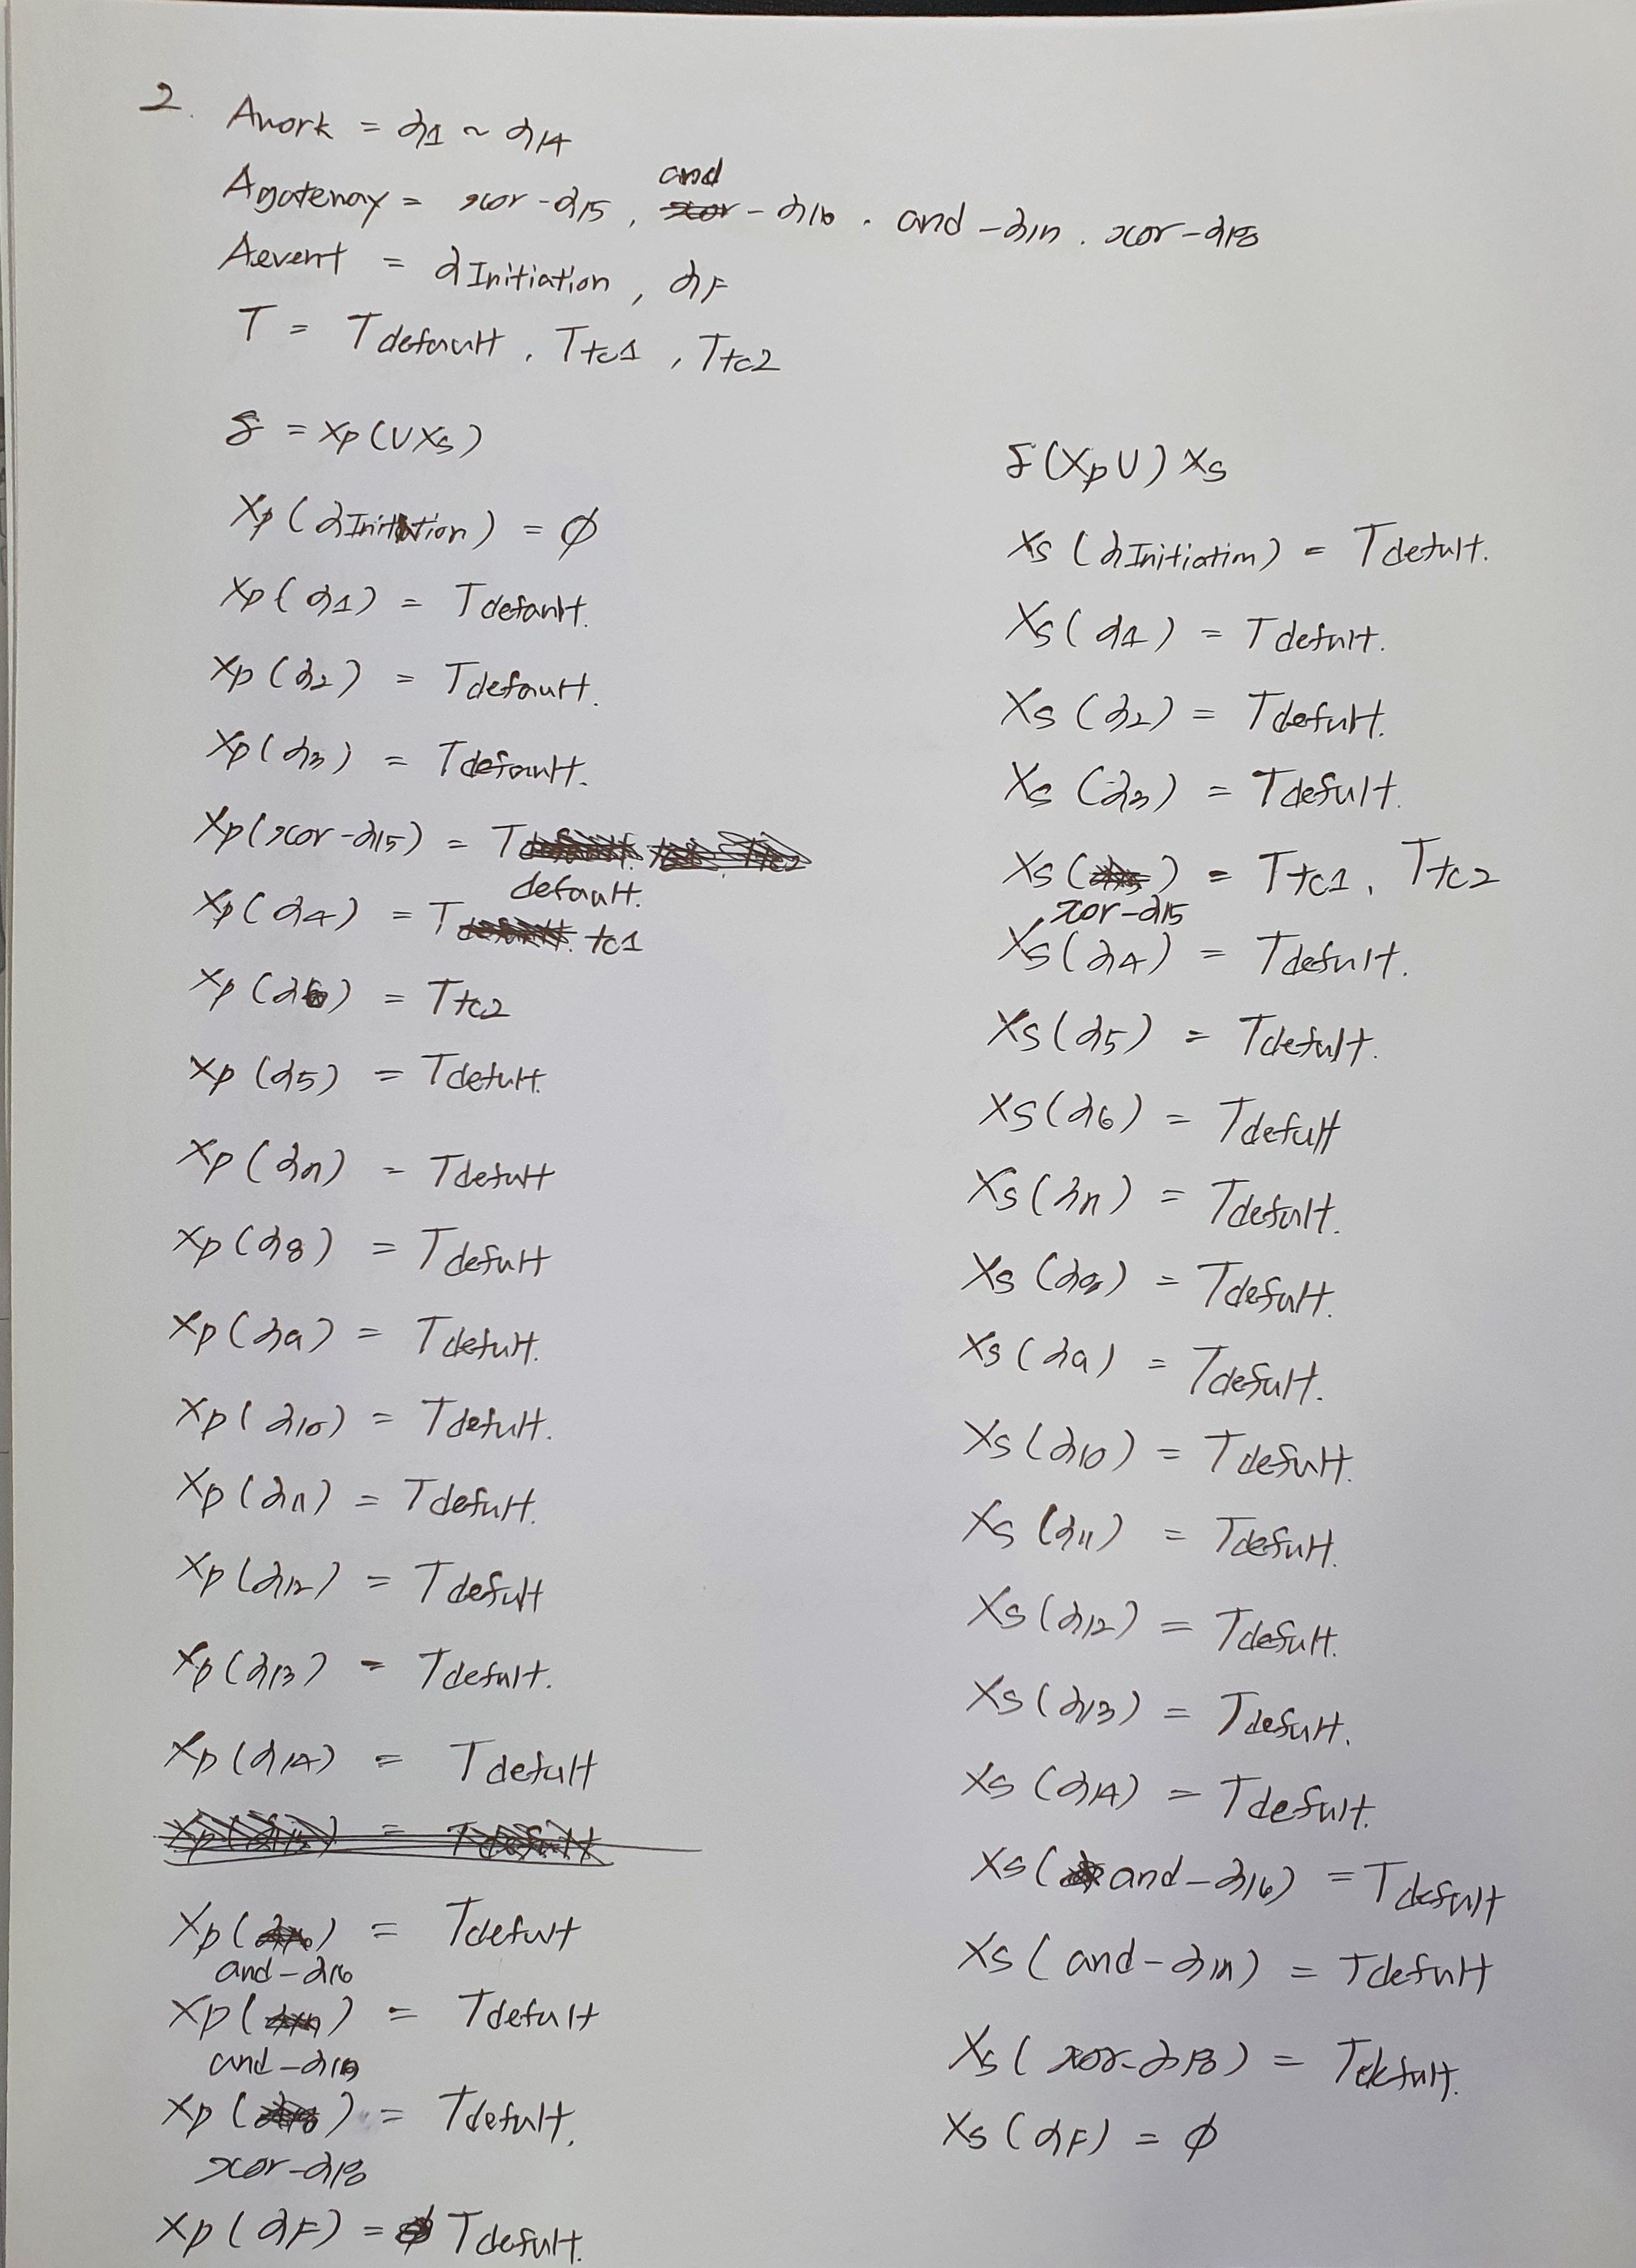 2. Awork = α1 ~ α14
Agateway = xor-α15, and-α16, and-α17, xor-α18
Aevent = αInitiation, αF
T = Tdefault, Ttc1, Ttc2
δ = Xp(∪Xs)
Xp(αInitiation) = ∅
Xp(α1) = Tdefault.
Xp(α2) = Tdefault.
Xp(α3) = Tdefault.
Xp(xor-α15) = T
default.
Xp(α4) = T tc1
Xp(α6) = Ttc2
Xp(α5) = Tdefult.
Xp(α7) = Tdefult
Xp(α8) = Tdefult
Xp(α9) = Tdefult.
Xp(α10) = Tdefult.
Xp(α11) = Tdefult.
Xp(α12) = Tdefult
Xp(α13) = Tdefult.
Xp(α14) = Tdefult
Xp( ) = Tdefult
and-α16
Xp( ) = Tdefult
Xp( ) = Tdefult.
xor-α18
Xp(αF) = Tdefult.
δ(Xp∪)Xs
Xs(αInitiation) = Tdefult.
Xs(α1) = Tdefult.
Xs(α2) = Tdefult.
Xs(α3) = Tdefult.
Xs( ) = Ttc1, Ttc2
xor-α15
Xs(α4) = Tdefult.
Xs(α5) = Tdefult.
Xs(α6) = Tdefult
Xs(α7) = Tdefult.
Xs(α8) = Tdefult.
Xs(α9) = Tdefult.
Xs(α10) = Tdefult.
Xs(α11) = Tdefult.
Xs(α12) = Tdefult.
Xs(α13) = Tdefult.
Xs(α14) = Tdefult.
Xs(and-α16) = Tdefult
Xs(and-α17) = Tdefult
Xs(xor-α18) = Tdefult.
Xs(αF) = ∅